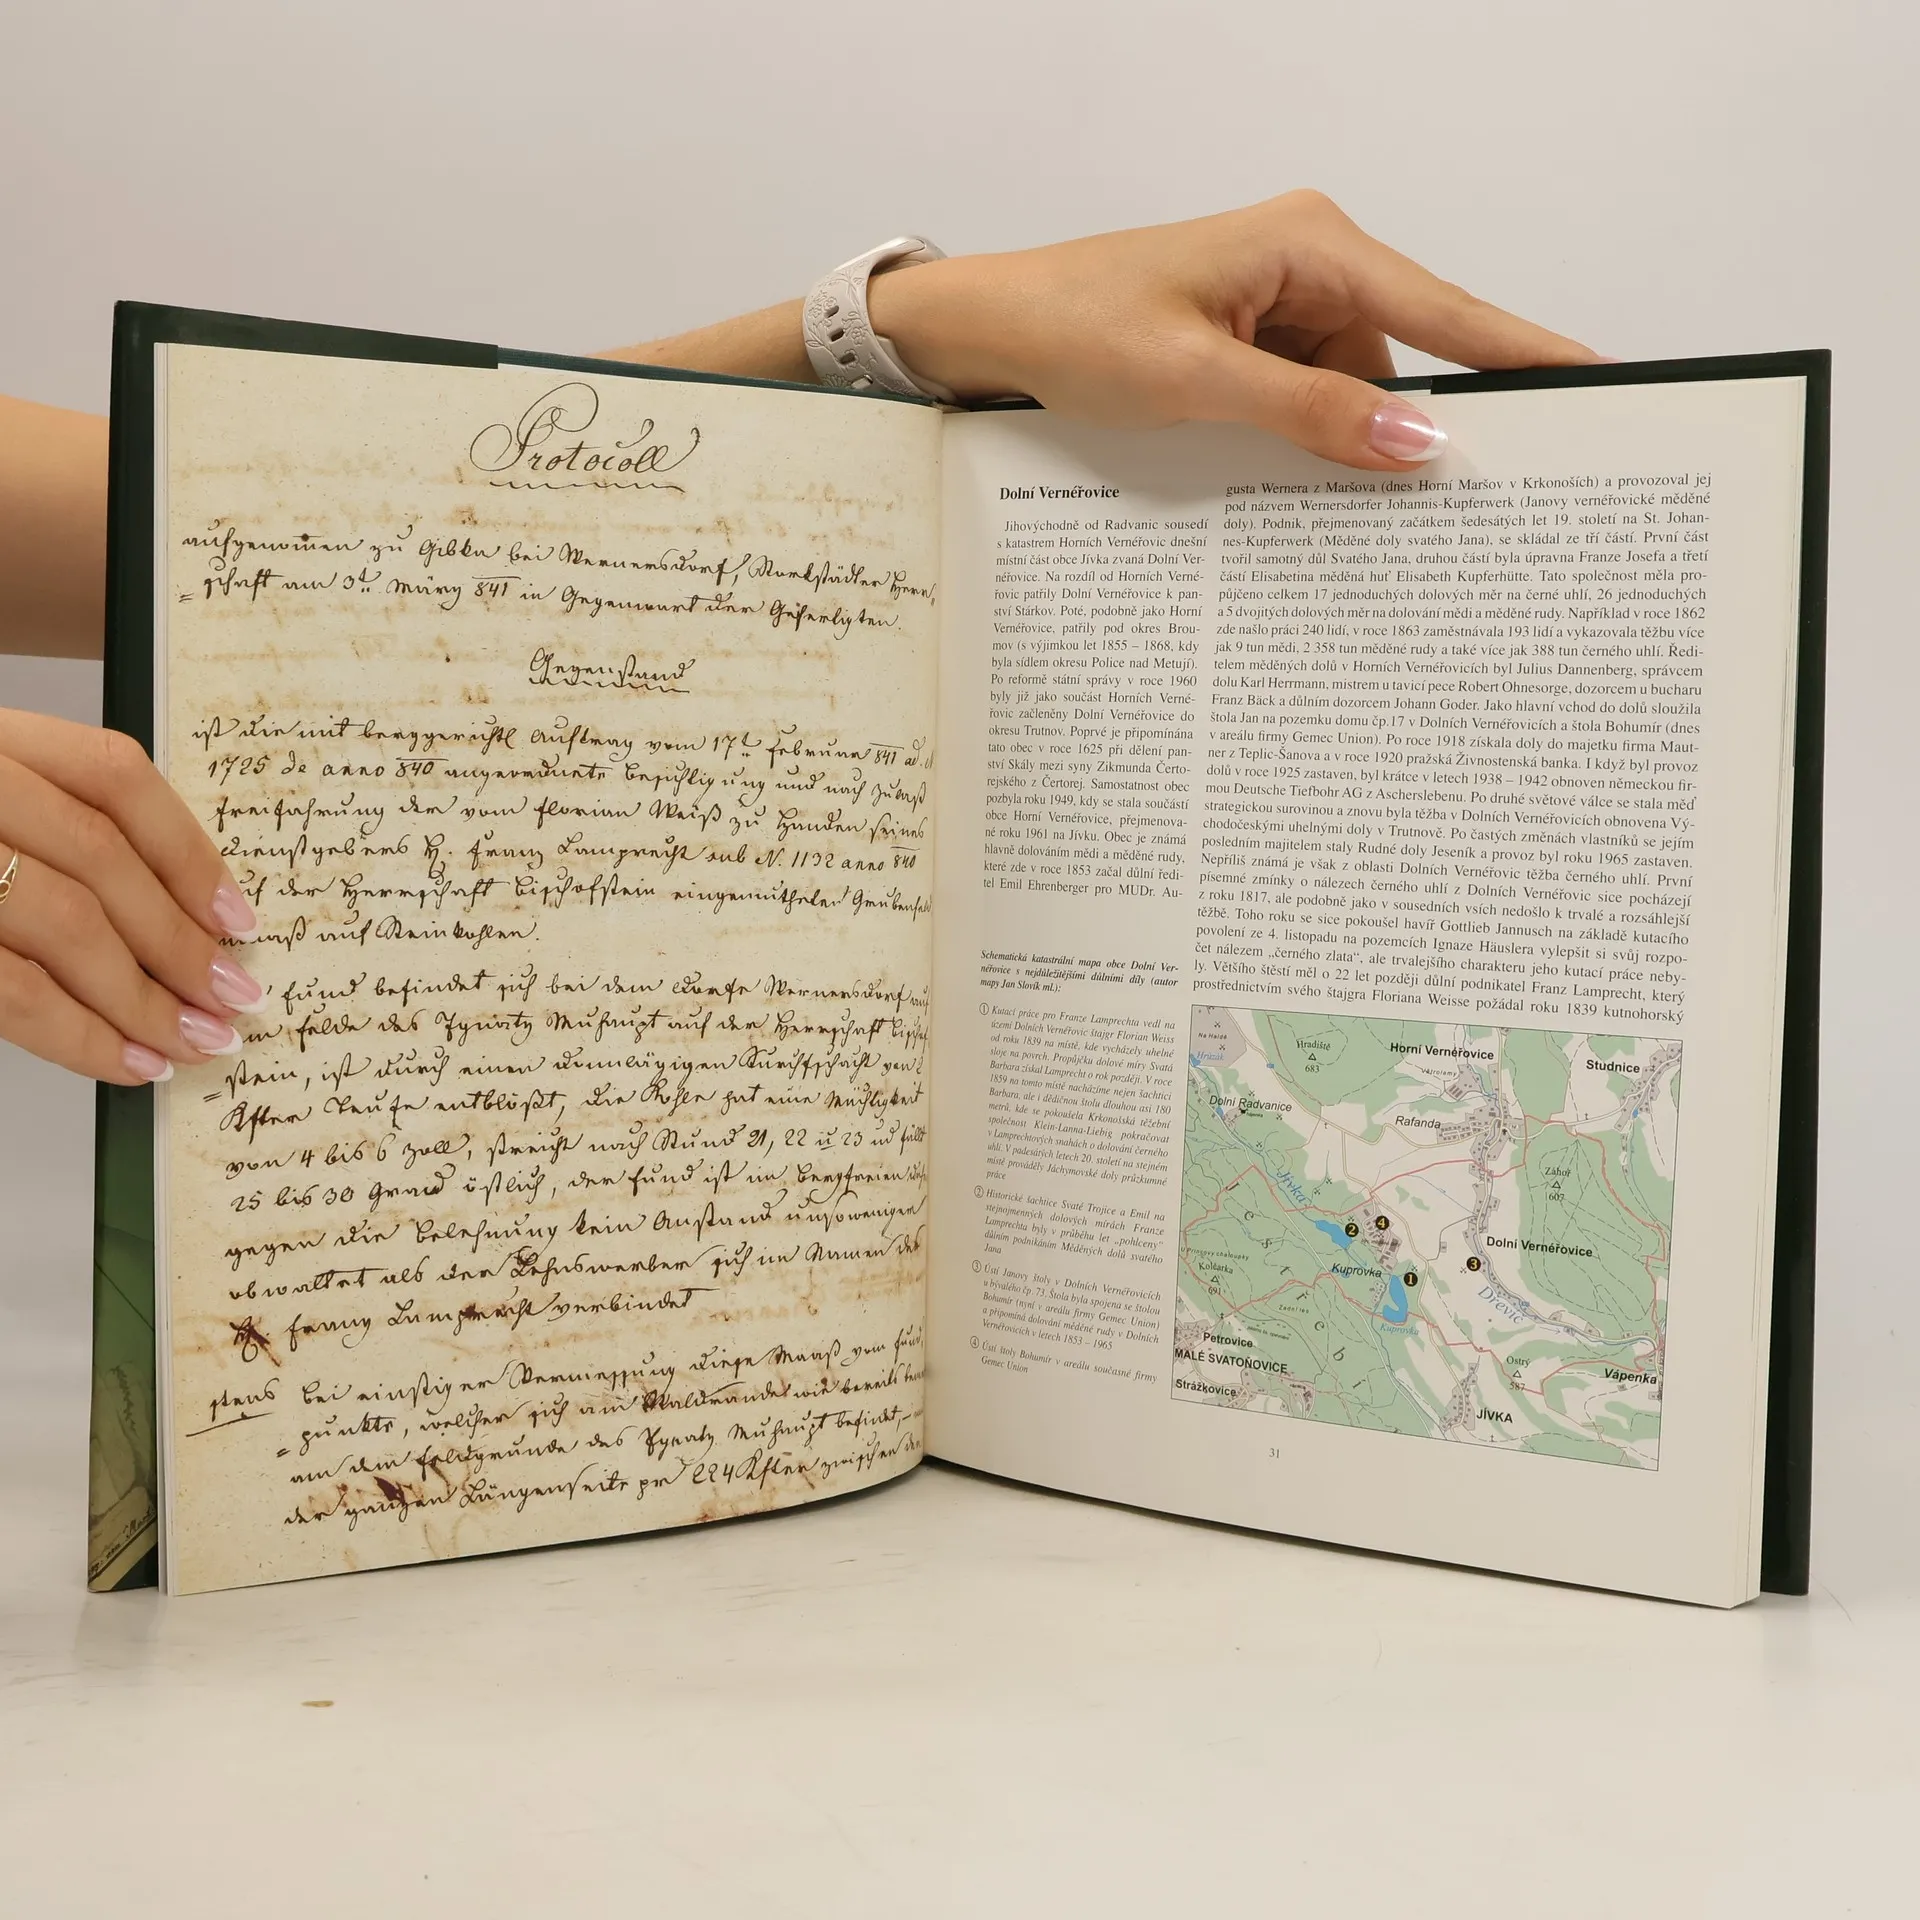 Protocoll
aufgenommen zu Gibka bei Wernersdorf, Starkstädter Herr=
=schaft am 3t. März 841 in Gegenwart der Gefertigten.
Gegenstand
ist die mit berggerichtl Auftrag vom 17t Februar 841 ad.
1725 de anno 840 angeordnete Besichtigung und nach Zulaß
Freifahrung der vom Florian Weiß zu Handen seines
Dienstgebers H. Franz Lamprecht sub N. 1132 anno 840
auf der Herrschaft Bischofstein eingemutheten Grubenfeld
maaß auf Steinkohlen.
Fund befindet sich bei dem Dorfe Wernersdorf auf
Felde des Ignatz Muhaupt auf der Herrschaft Bischof
=stein, ist durch einen donnlägigen Durchschacht von
Kfter Teufe entblößt, die Kohle hat eine Mächtigkeit
von 4 bis 6 Zoll, streicht nach Stund 21, 22 u 23 und fällt
25 bis 30 Grad östlich, der Fund ist im Bergfreien
gegen die Belehnung kein Anstand umsoweniger
obwaltet als der Lehnswerber sich im Namen des
H. Franz Lamprecht verbindet
stens bei einstiger Vermessung diese Maaß vom Fund
=punkte, welcher sich am Waldrande wie bereits
am dem Feldgrunde des Ignatz Muhaupt befindet,
der ganzen Längenseite pr 224 Kfter zwischen den
Dolní Vernéřovice
Jihovýchodně od Radvanic sousedí
s katastrem Horních Vernéřovic dnešní
místní část obce Jívka zvaná Dolní Ver-
néřovice. Na rozdíl od Horních Verné-
řovic patřily Dolní Vernéřovice k pan-
ství Stárkov. Poté, podobně jako Horní
Vernéřovice, patřily pod okres Brou-
mov (s výjimkou let 1855 – 1868, kdy
byla sídlem okresu Police nad Metují).
Po reformě státní správy v roce 1960
byly již jako součást Horních Verné-
řovic začleněny Dolní Vernéřovice do
okresu Trutnov. Poprvé je připomínána
tato obec v roce 1625 při dělení pan-
ství Skály mezi syny Zikmunda Čerto-
rejského z Čertorej. Samostatnost obec
pozbyla roku 1949, kdy se stala součástí
obce Horní Vernéřovice, přejmenova-
né roku 1961 na Jívku. Obec je známá
hlavně dolováním mědi a měděné rudy,
které zde v roce 1853 začal důlní ředi-
tel Emil Ehrenberger pro MUDr. Au-
gusta Wernera z Maršova (dnes Horní Maršov v Krkonoších) a provozoval jej
pod názvem Wernersdorfer Johannis-Kupferwerk (Janovy vernéřovické měděné
doly). Podnik, přejmenovaný začátkem šedesátých let 19. století na St. Johan-
nes-Kupferwerk (Měděné doly svatého Jana), se skládal ze tří částí. První část
tvořil samotný důl Svatého Jana, druhou částí byla úpravna Franze Josefa a třetí
částí Elisabetina měděná huť Elisabeth Kupferhütte. Tato společnost měla pro-
půjčeno celkem 17 jednoduchých dolových měr na černé uhlí, 26 jednoduchých
a 5 dvojitých dolových měr na dolování mědi a měděné rudy. Například v roce 1862
zde našlo práci 240 lidí, v roce 1863 zaměstnávala 193 lidí a vykazovala těžbu více
jak 9 tun mědi, 2 358 tun měděné rudy a také více jak 388 tun černého uhlí. Ředi-
telem měděných dolů v Horních Vernéřovicích byl Julius Dannenberg, správcem
dolu Karl Herrmann, mistrem u tavicí pece Robert Ohnesorge, dozorcem u bucharu
Franz Bäck a důlním dozorcem Johann Goder. Jako hlavní vchod do dolů sloužila
štola Jan na pozemku domu čp.17 v Dolních Vernéřovicích a štola Bohumír (dnes
v areálu firmy Gemec Union). Po roce 1918 získala doly do majetku firma Maut-
ner z Teplic-Šanova a v roce 1920 pražská Živnostenská banka. I když byl provoz
dolů v roce 1925 zastaven, byl krátce v letech 1938 – 1942 obnoven německou fir-
mou Deutsche Tiefbohr AG z Ascherslebenu. Po druhé světové válce se stala měď
strategickou surovinou a znovu byla těžba v Dolních Vernéřovicích obnovena Vý-
chodočeskými uhelnými doly v Trutnově. Po častých změnách vlastníků se jejím
posledním majitelem staly Rudné doly Jeseník a provoz byl roku 1965 zastaven.
Nepříliš známá je však z oblasti Dolních Vernéřovic těžba černého uhlí. První
písemné zmínky o nálezech černého uhlí z Dolních Vernéřovic sice pocházejí
z roku 1817, ale podobně jako v sousedních vsích nedošlo k trvalé a rozsáhlejší
těžbě. Toho roku se sice pokoušel havíř Gottlieb Jannusch na základě kutacího
povolení ze 4. listopadu na pozemcích Ignaze Häuslera vylepšit si svůj rozpo-
čet nálezem „černého zlata“, ale trvalejšího charakteru jeho kutací práce neby-
ly. Většího štěstí měl o 22 let později důlní podnikatel Franz Lamprecht, který
prostřednictvím svého štajgra Floriana Weisse požádal roku 1839 kutnohorský
Schematická katastrální mapa obce Dolní Ver-
néřovice s nejdůležitějšími důlními díly (autor
mapy Jan Slovík ml.):
① Kutací práce pro Franze Lamprechta vedl na
území Dolních Vernéřovic štajgr Florian Weiss
od roku 1839 na místě, kde vycházely uhelné
sloje na povrch. Propůjčku dolové míry Svatá
Barbara získal Lamprecht o rok později. V roce
1859 na tomto místě nacházíme nejen šachtici
Barbara, ale i dědičnou štolu dlouhou asi 180
metrů, kde se pokoušela Krkonošská těžební
společnost Klein-Lanna-Liebig pokračovat
v Lamprechtových snahách o dolování černého
uhlí. V padesátých letech 20. století na stejném
místě prováděly Jáchymovské doly průzkumné
práce
② Historické šachtice Svaté Trojice a Emil na
stejnojmenných dolových mírách Franze
Lamprechta byly v průběhu let „pohlceny“
důlním podnikáním Měděných dolů svatého
Jana
③ Ústí Janovy štoly v Dolních Vernéřovicích
u bývalého čp. 73. Štola byla spojena se štolou
Bohumír (nyní v areálu firmy Gemec Union)
a připomíná dolování měděné rudy v Dolních
Vernéřovicích v letech 1853 – 1965
④ Ústí štoly Bohumír v areálu současné firmy
Gemec Union
Na Haldě
Hradiště
683
Horní Vernéřovice
Studnice
Dolní Radvanice
Rafanda
Záhoř
607
Jívka
Jestřebí
2
4
Dolní Vernéřovice
3
Kolčarka
691
Kuprovka
1
Dřevíč
Kuprovka
Petrovice
MALÉ SVATOŇOVICE
Ostrý
587
Vápenka
Strážkovice
JÍVKA
31